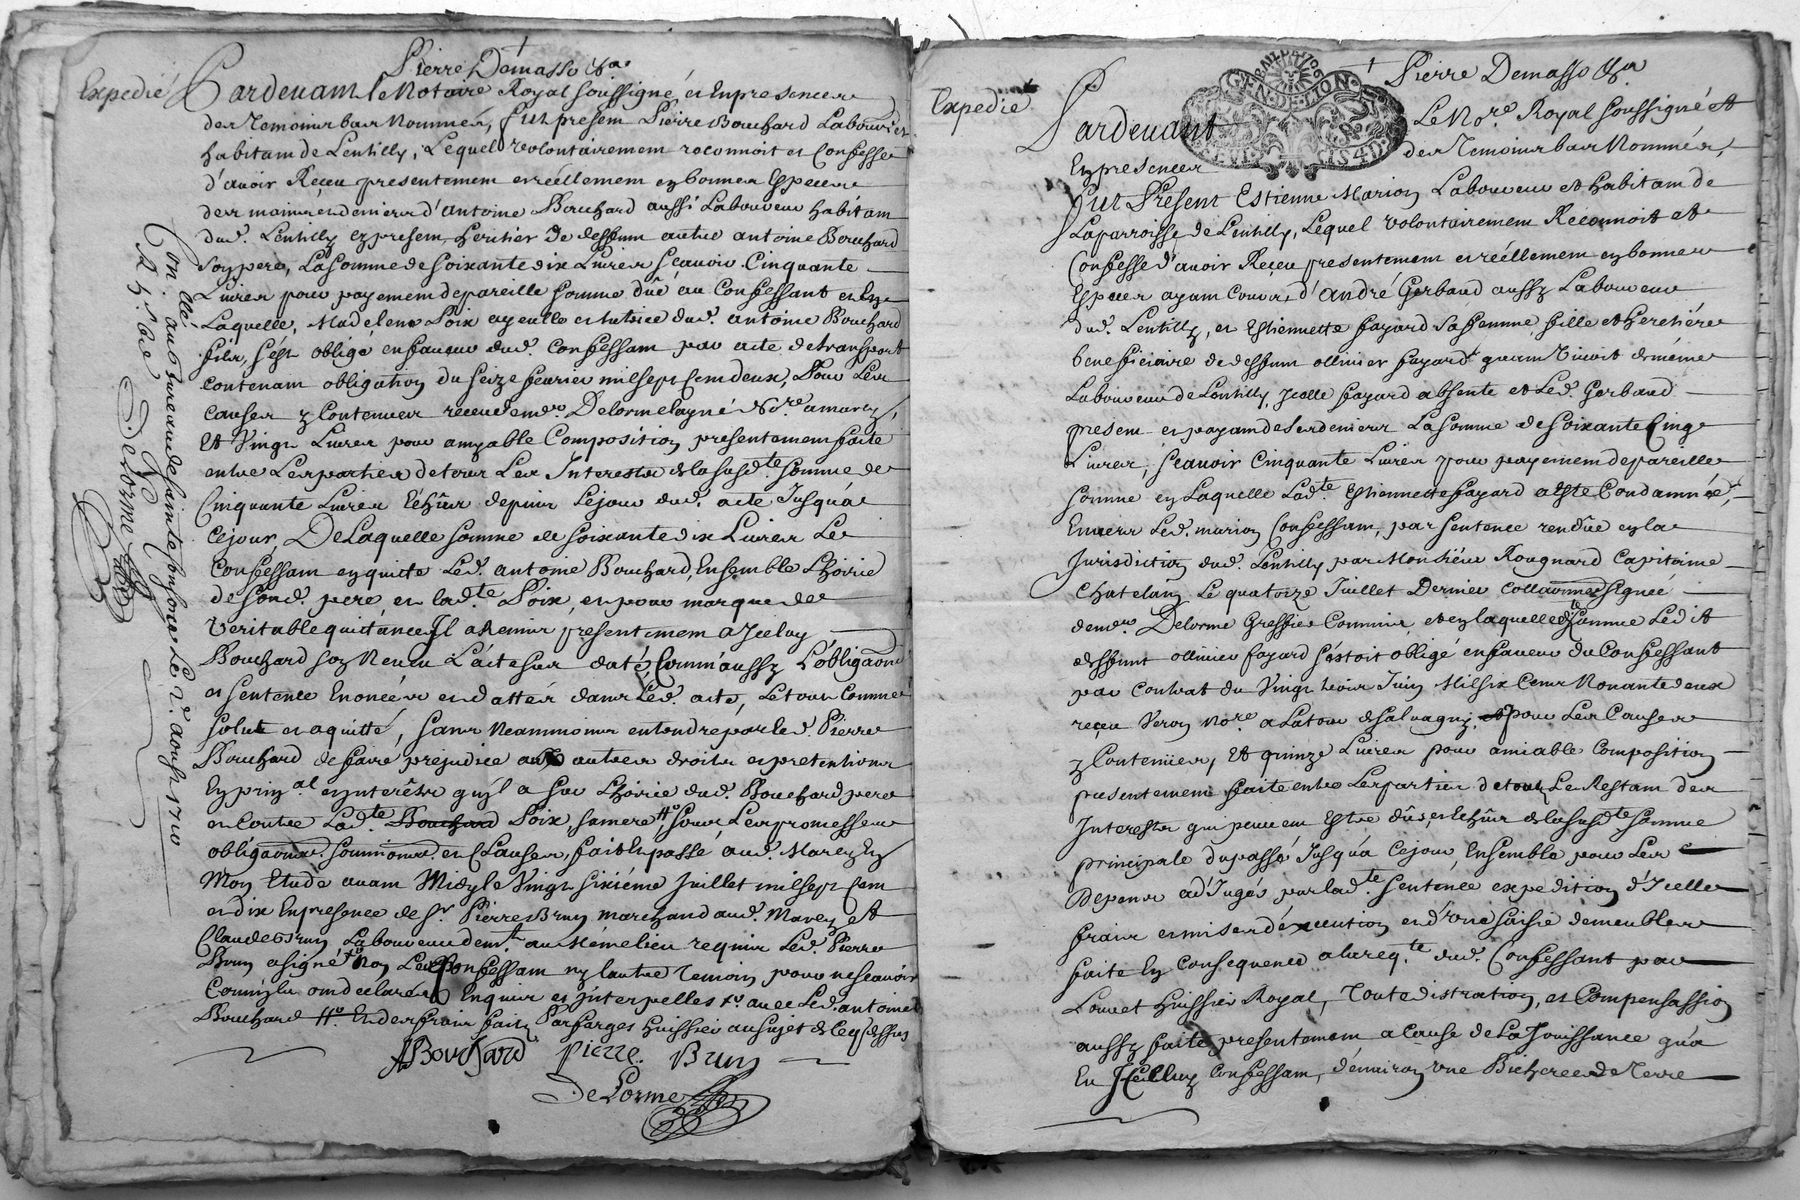 Pierre Demasso
Expedié
Pardeuant le Notaire Royal soussigné, et Enpresence
des Temoins bas Nommés, fut present Pierre Bouchard Laboureur
habitant de Lentilly, Lequel volontairement reconnoit et Confesse
d'auoir Reçeu presentement et reellement en bonnes Especes
des mains et deniers d'antoine Bouchard aussi Laboureur habitant
dud. Lentilly et present, heritier de deffunt autre antoine Bouchard
son pere, La somme de soixante dix Liures scauoir Cinquante
Liures pour payement de pareille somme düe au Confessant et En
Laquelle, Madelene Loix ayeulle et tutrice dud. antoine Bouchard
fils, s'est obligé en faueur dud. Confessant par acte de transport
contenant obligation du seize feurier mil sept Cent deux, Pour Les
causes y Contenues receu de mr. Delorme layné Nore. a marcy,
Et Vingt Liures pour amyable Composition presentement faite
entre Les parties de tous Les Interests de la susdte. somme de
Cinquante Liures Echûs depuis Le jour dud. acte Jusqu'a
Ce jour, De Laquelle somme de soixante dix Liures Le
Confessant en quitte Led. antoine Bouchard, Ensemble L'hoirie
de sond. pere, et ladte. Loix, et pour marque de
Veritable quittance Il a Remis presentement a Iceluy
Bouchard son Neueu L'acte sus daté, Comm'aussy L'obligaon
et sentence Enoncées et dattées dans Led. acte, Le tout Comme
solut et aquitté, sans Neanmoins entendre par led. Pierre
Bouchard de faire prejudice aux autres droits et pretentions
En prinal. et interests qu'il a sur L'hoirie dud. Bouchard pere
et Contre Ladte. Bouchard Loix, sa mere # sous Les promesses
obligaons. soumions. et Clauses, fait et passé aud. Marcy En
Mon Etude auant Midy le Vingt sixiéme Juillet mil sept Cent
et dix En presence de sr. Pierre Brun marchand aud. Marcy et
Claude Brun Laboureur demt. au Méme lieu requis Led. Pierre
Brun a signé Non Le Confessant ny l'autre Temoin pour ne scauoir
Comm'ils ont declaré Enquis et Interpelles auec Led. antoine
Bouchard #. Et des frais faits Par farges huissier au sujet de ce que dessus
ABouchard Pierre Brun
DeLorme
Con.llé au bureau de sainte Consorce Le 2. aoust 1710
R. 5 s.
Delorme
Pierre Demasso
Expedié
GEN. DE LION
Pardeuant
Le Nore. Royal soussigné et
En presence
des Temoins bas Nommés,
fut Present Estienne Marion Laboureur et habitant de
La parroisse de Lentilly, Lequel volontairement Reconnoit et
Confesse d'auoir Reçeu presentement et réellement en bonnes
Especes ayant Cours, d'André Gerbaud aussy Laboureur
dud. Lentilly, et Estiennette fayard sa femme, fille et heritiére
beneficiaire de deffunt ollinier fayard quant Viuoit de méme
Laboureur de Lentilly, Icelle fayard absente et Led. Gerbaud
present et payant de ses deniers La somme de soixante Cinq
Liures, scauoir Cinquante Liures pour payement de pareille
somme en Laquelle Ladte. Estiennette fayard a esté Condamnée,
Enuers Led. marion Confessant, par sentence rendüe en la
Jurisdiction dud. Lentilly par Monsieur Rougnard Capitaine
Chatelain Le quatorze Juillet Dernier collaonnée signée
de mr. Delorme Greffier Commis, et en laquelle dte. somme Ledit
deffunt ollinier fayard s'estoit obligé en faueur du Confessant
par Contrat du Vingt trois Juin Mil six Cent Nonante deux
receu Veron nore. a La tour de saluagny, pour Les Causes
y Contenües, Et quinze Liures pour amiable Composition
presentement faite entre Les parties de tout Le Restant des
Interests qui peuuent Estre dûs, et Echûs de la susdte. somme
principale du passé Jusqu'a Ce jour, Ensemble pour Les
Depens ad'Jugés par ladte. sentence expedition d'Icelle
frais et mises d'execution et d'une saisie de meubles
faite En Consequence a la reqte. dud. Confessant par
Louuet huissier Royal, Toute distration, et Compensassion
aussy faite presentement a Cause de La Jouissance qu'a
Eu Icelluy Confessant, d'enuiron une Bicherée de Terre